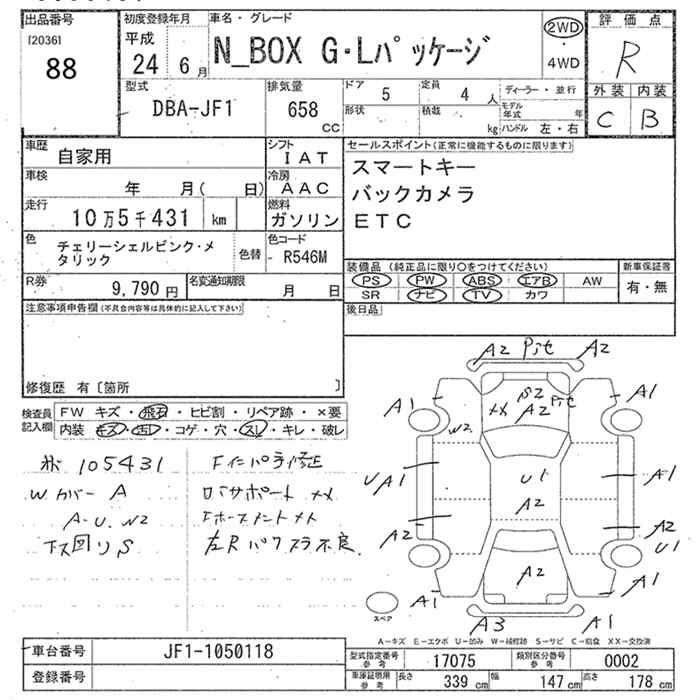 出品番号
[2036]
88
初度登録年月
平成
24 6月
車名・グレード
N_BOX G・Lパッケージ
2WD
・
4WD
評価点
R
外装 内装
C B
型式
DBA-JF1
排気量
658
CC
ドア 5
定員 4 人
形状
積載 kg
ディーラー・並行
モデル年式 年
ハンドル 左・右
車歴
自家用
シフト
IAT
車検
年 月( 日)
冷房
AAC
走行
10万5千431 km
燃料
ガソリン
色
チェリーシェルピンク・メタリック
色替
色コード
R546M
R券
9,790 円
名変通知期限
月 日
セールスポイント(正常に機能するものに限ります)
スマートキー
バックカメラ
ETC
装備品(純正品に限り○をつけてください)
PS PW ABS エアB AW
SR ナビ TV カワ
新車保証書
有・無
後日品
注意事項申告欄(不具合内容等は具体的に記入して下さい)
修復歴 有〔箇所 〕
検査員記入欄
FW キズ・飛石・ヒビ割・リペア跡・×要
内装 キズ・汚レ・コゲ・穴・スレ・キレ・破レ
105431
Wカバー A
A-U.W2
下回りS
Fインパネ修正
Rサポート XX
左Rバックスラ不良
A2 Pit A2
A1
S2 Pit
XX A2
A1
W2
UA1
U1
A1
A2
A2
A2
U1
A2
A1
A1
A3
A1
スペア
A-キズ E-エクボ U-凹み W-補修跡 S-サビ C-腐食 XX-交換済
車台番号
JF1-1050118
登録番号
型式指定番号 参考
17075
類別区分番号 参考
0002
車庫証明用 参考
長さ 339 cm
幅 147 cm
高さ 178 cm